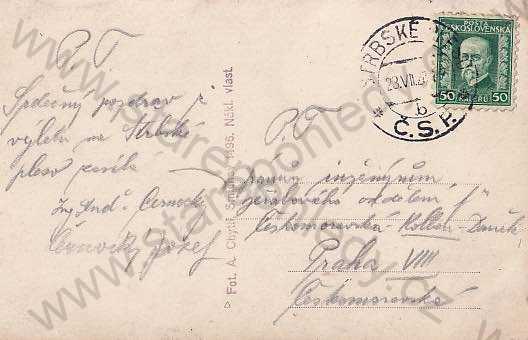 P. T.
Srdečný pozdrav z
výletu na Štrbské
pleso zasílá
Ing. And. Černocký
Černocký Josef
Fot. A. Chytil, 1896. Nákl. vlast.
ŠTRBSKÉ
28.VII.
b
Č.S.P.
POŠTA
ČESKOSLOVENSKÁ
50 HALÉŘŮ 50
P. T.
pánům inženýrům
oddělení "f"
Českomoravská-Kolben-Daněk
Praha VIII
Českomoravská
www.staremohlednice.cz